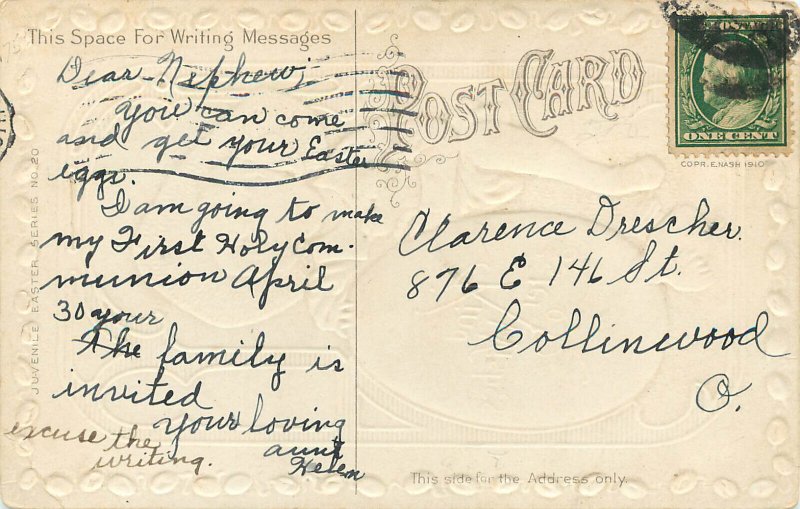 This Space For Writing Messages
Dear Nephew,
you can come
and get your Easter
eggs.
I am going to make
my First Holy Com-
munion April
30 your
The family is
invited
your loving
aunt
Helen
excuse the
writing.
JUVENILE EASTER SERIES NO. 20
POST CARD
POSTAGE
ONE CENT
COPR. E. NASH 1910
Clarence Drescher.
876 E 146 St.
Collinwood
O.
This side for the Address only.